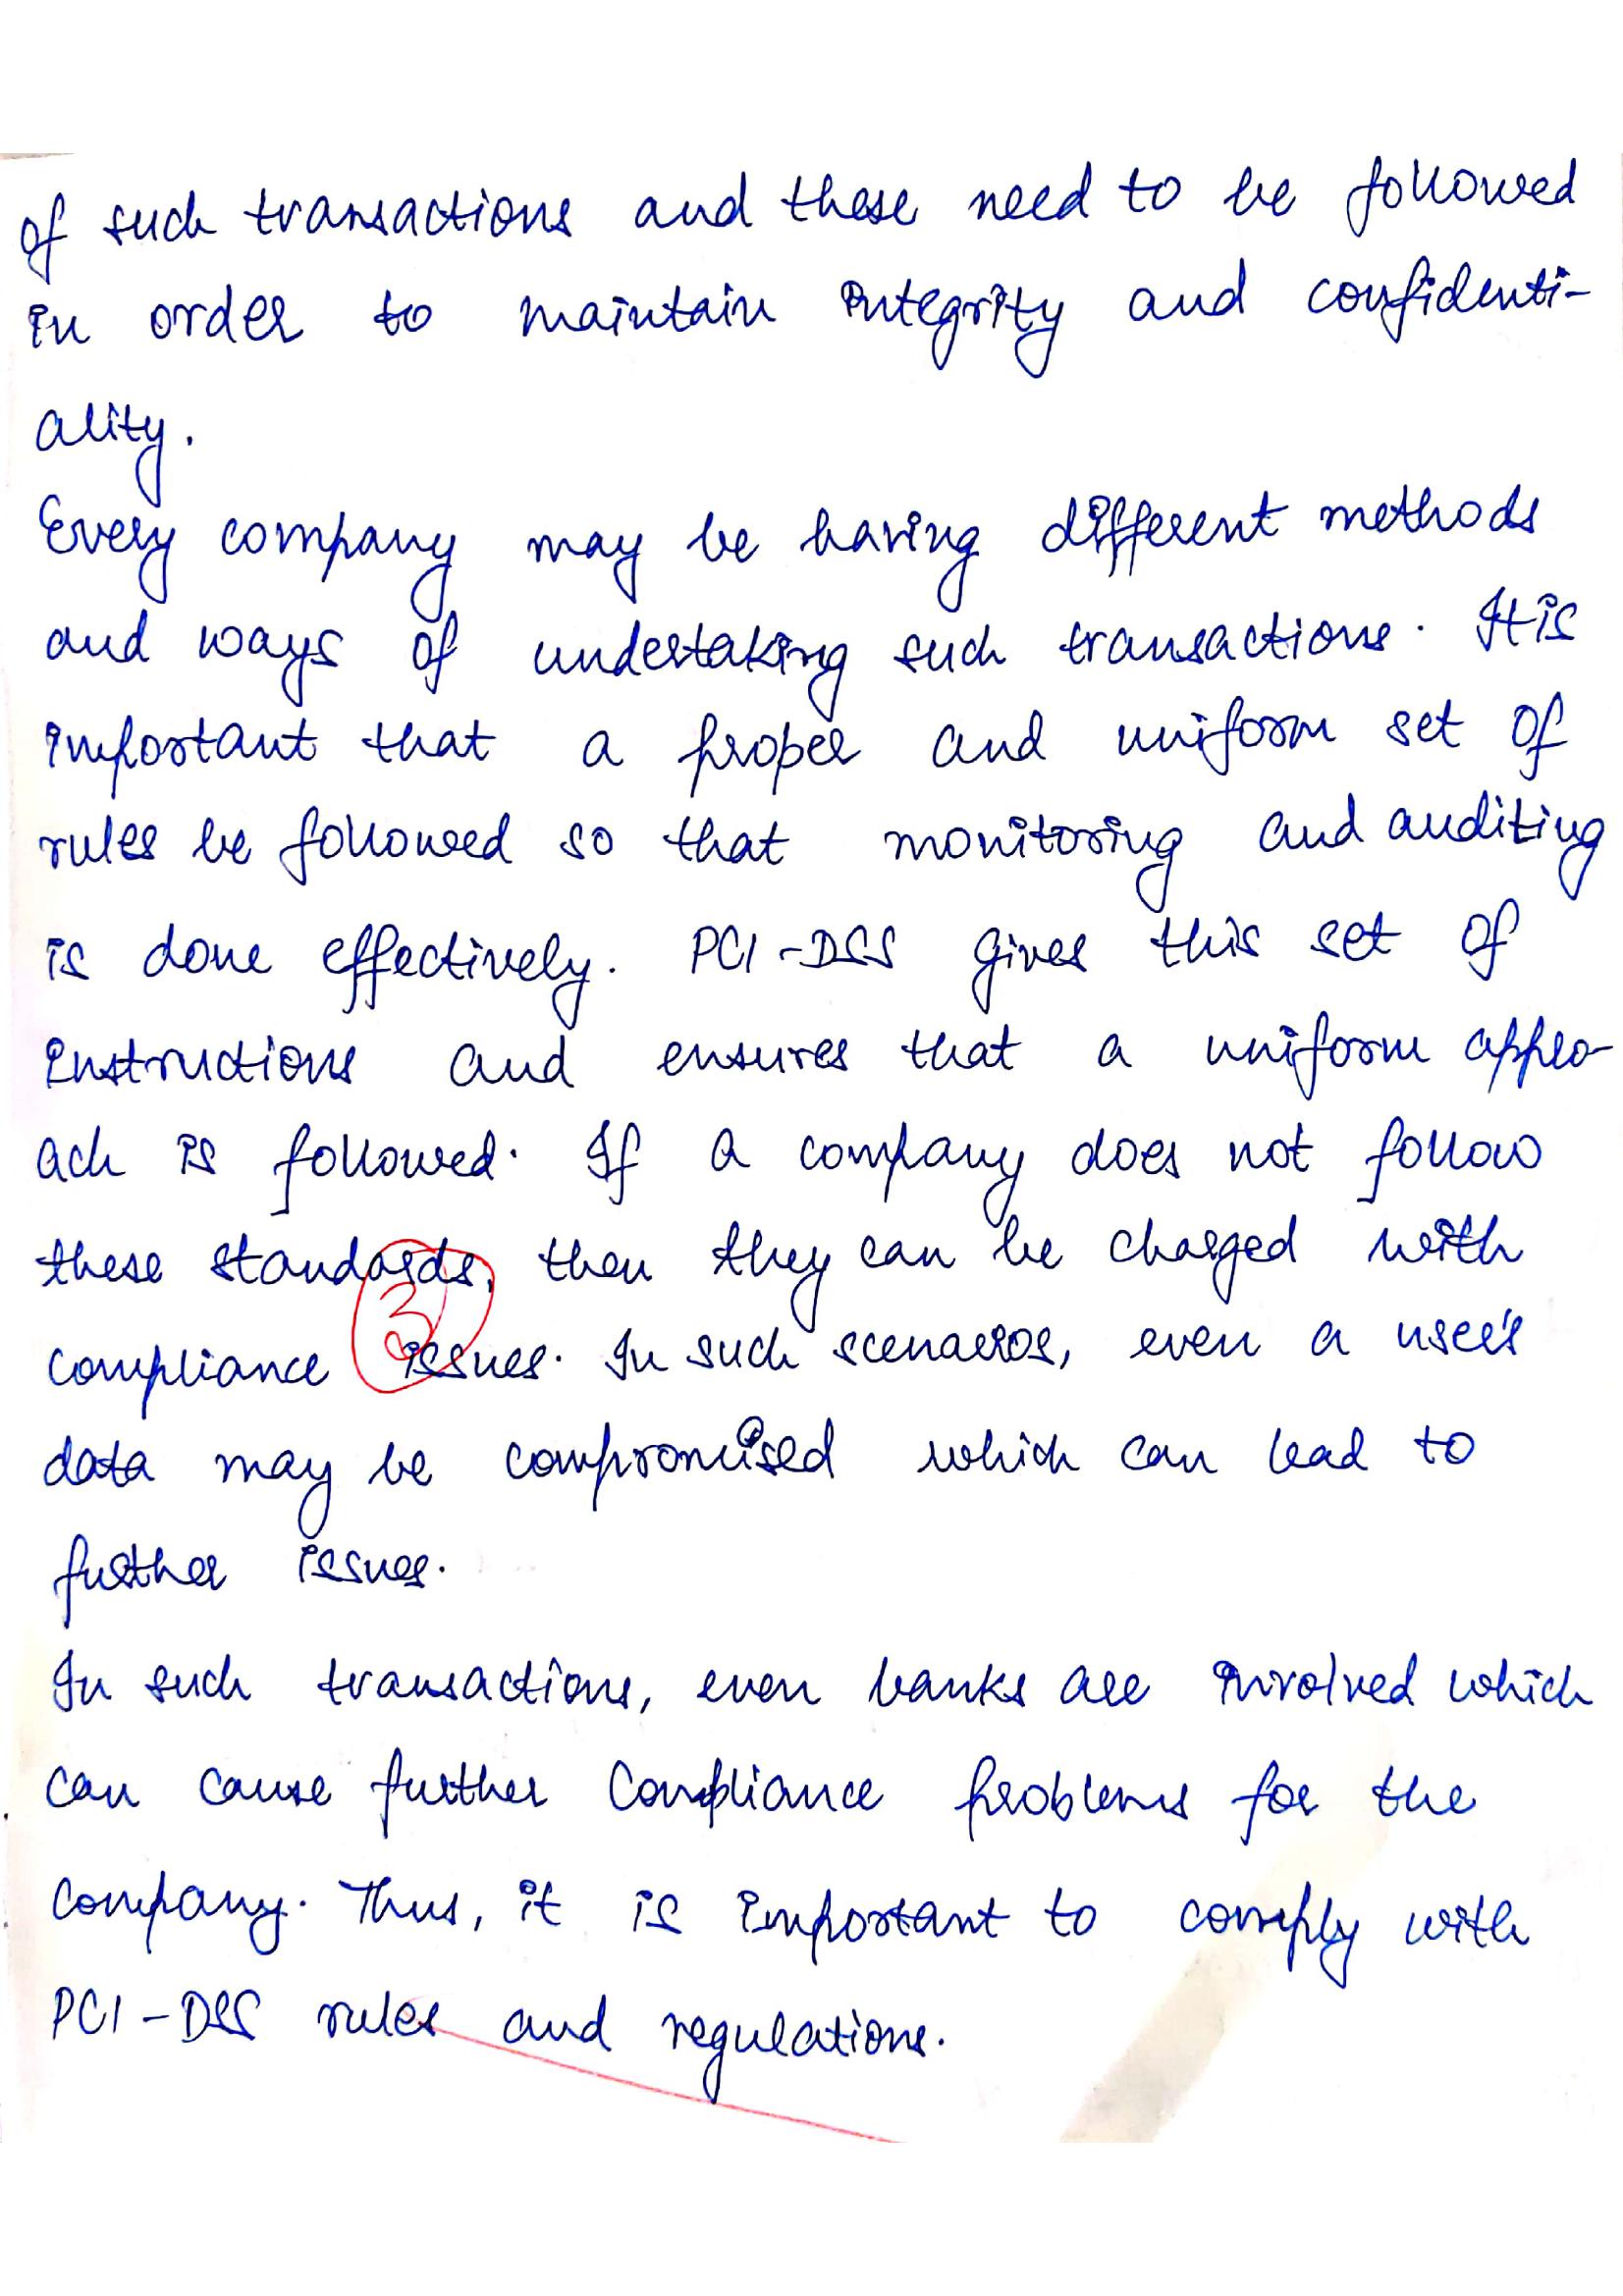 of such transactions and these need to be followed
in order to maintain integrity and confidenti-
ality.
Every company may be having different methods
and ways of undertaking such transactions. It is
important that a proper and uniform set of
rules be followed so that monitoring and auditing
is done effectively. PCI-DSS gives this set of
instructions and ensures that a uniform appro-
ach is followed. If a company does not follow
these standards, then they can be charged with
compliance issues. In such scenarios, even a user's
data may be compromised which can lead to
further issues.
In such transactions, even banks are involved which
can cause further compliance problems for the
company. Thus, it is important to comply with
PCI-DSS rules and regulations.